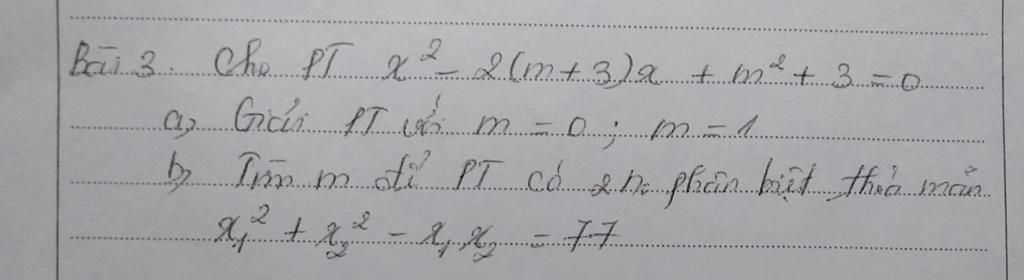 Bài 3. Cho PT x² - 2(m+3)x + m² + 3 = 0
a, Giải PT với m = 0 ; m = 1
b, Tìm m để PT có 2 no phân biệt thỏa mãn
x₁² + x₂² - x₁x₂ = 77